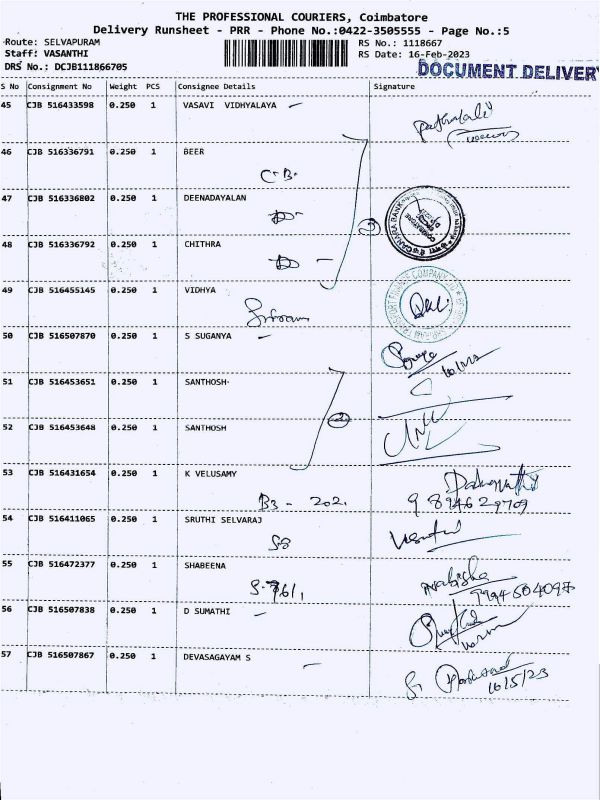 THE PROFESSIONAL COURIERS, Coimbatore
Delivery Runsheet - PRR - Phone No.:0422-3505555 - Page No.:5
Route: SELVAPURAM RS No.: 1118667
Staff: VASANTHI RS Date: 16-Feb-2023
DRS No.: DCJB111866705 DOCUMENT DELIVERY
S No Consignment No Weight PCS Consignee Details Signature
45 CJB 516433598 0.250 1 VASAVI VIDHYALAYA
46 CJB 516336791 0.250 1 BEER
C-B-
47 CJB 516336802 0.250 1 DEENADAYALAN
CANARA BANK
48 CJB 516336792 0.250 1 CHITHRA
49 CJB 516455145 0.250 1 VIDHYA
Sriram
50 CJB 516507870 0.250 1 S SUGANYA
51 CJB 516453651 0.250 1 SANTHOSH
52 CJB 516453648 0.250 1 SANTHOSH
53 CJB 516431654 0.250 1 K VELUSAMY
B3 - 202
9894629709
54 CJB 516411065 0.250 1 SRUTHI SELVARAJ
55 CJB 516472377 0.250 1 SHABEENA
9994604097
56 CJB 516507838 0.250 1 D SUMATHI
57 CJB 516507867 0.250 1 DEVASAGAYAM S
16/5/23